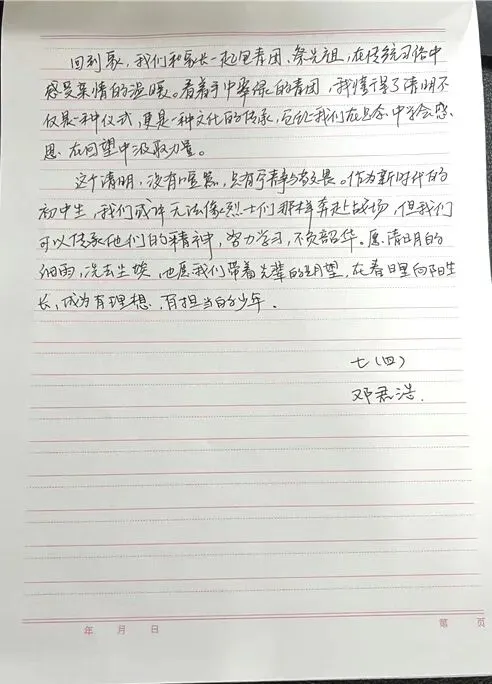 回到家，我们和家长一起包青团、祭先祖，在传统习俗中
感受亲情的温暖。看着手中翠绿的青团，我懂得了清明不
仅是一种仪式，更是一种文化的传承，它让我们在思念中学会感
恩，在回望中汲取力量。
这个清明，没有喧嚣，只有宁静与敬畏。作为新时代的
初中生，我们或许无法像烈士们那样奔赴战场，但我们
可以传承他们的精神，努力学习，不负韶华。愿清明的
细雨，洗去尘埃，也愿我们带着先辈的期望，在春日里向阳生
长，成为有理想，有担当的少年．
七（四）
邓君浩．
年 月 日
第 页